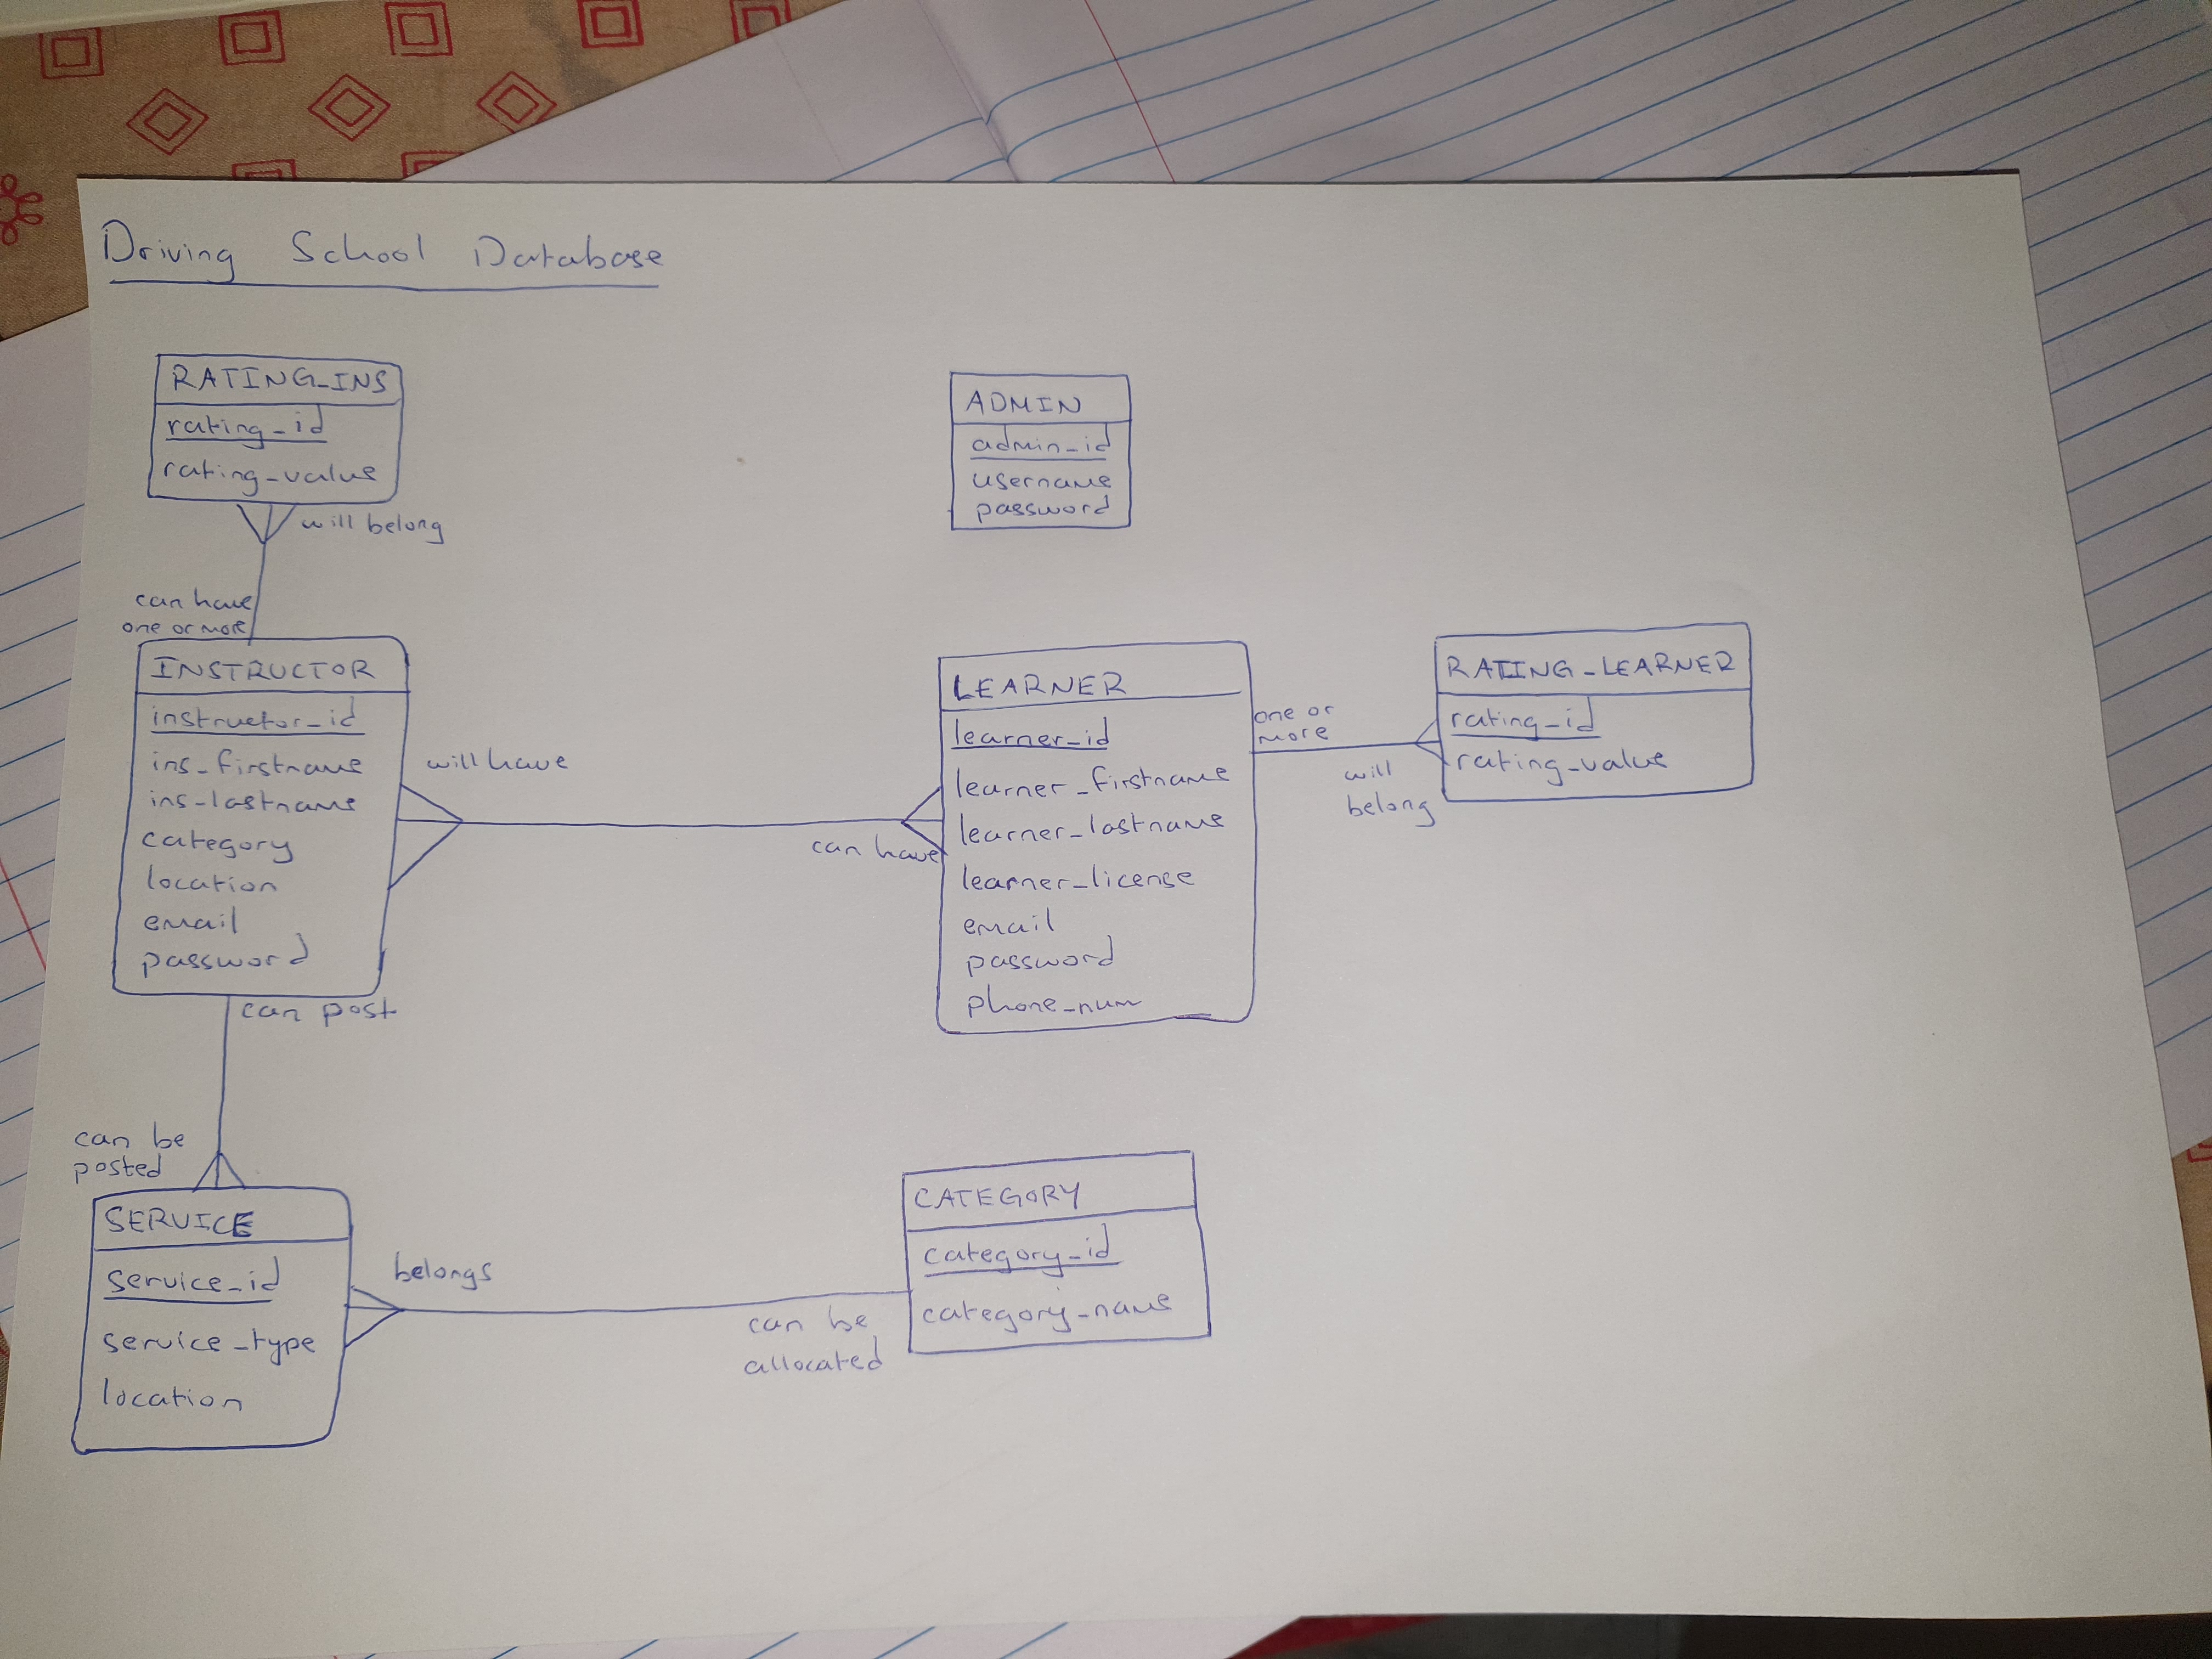 Driving School Database
RATING_INS
rating_id
rating_value
will belong
can have
one or more
ADMIN
admin_id
username
password
INSTRUCTOR
instructor_id
ins_firstname
ins_lastname
category
location
email
password
will have
can have
LEARNER
learner_id
learner_firstname
learner_lastname
learner_license
email
password
phone_num
one or
more
will
belong
RATING_LEARNER
rating_id
rating_value
can post
can be
posted
SERVICE
service_id
service_type
location
belongs
can be
allocated
CATEGORY
category_id
category_name